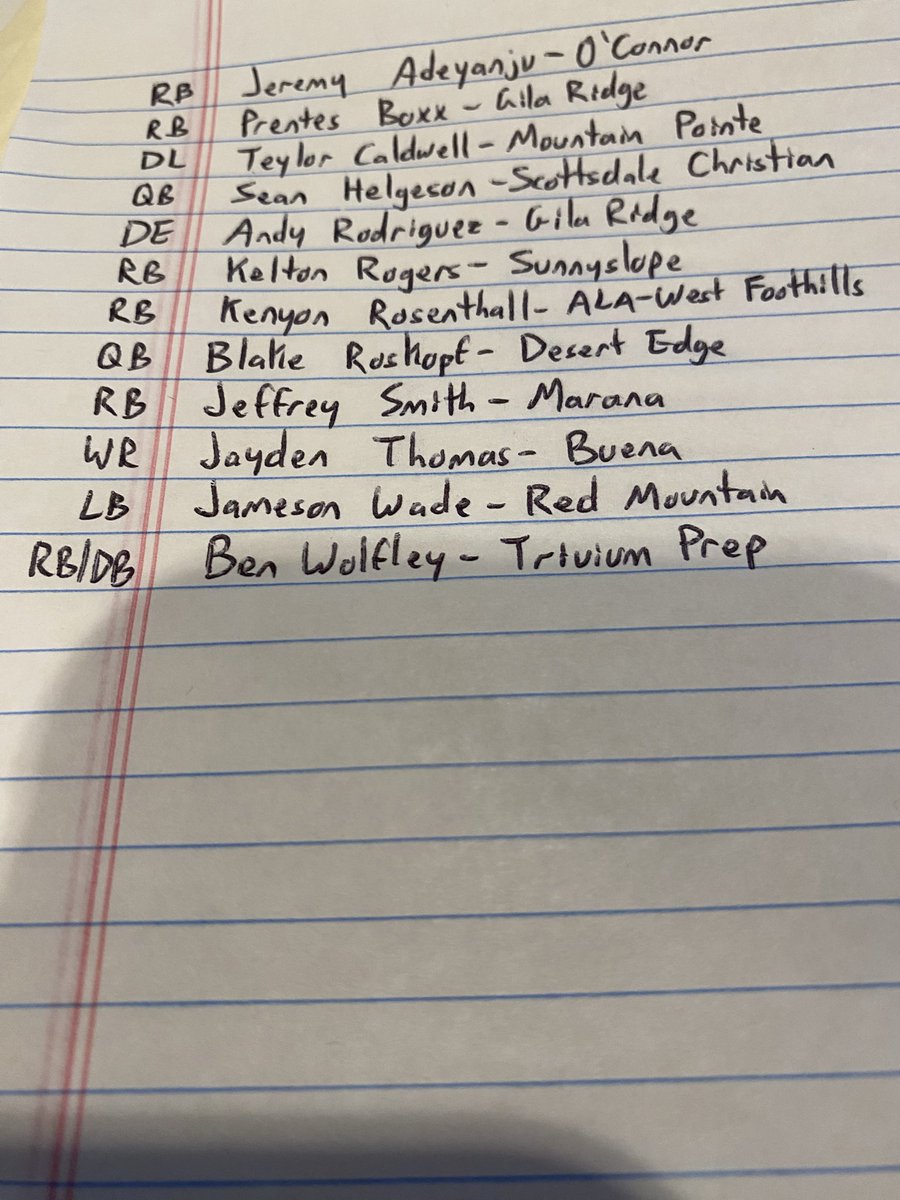 RB Jeremy Adeyanju - O'Connor
RB Prentes Boxx - Gila Ridge
DL Teylor Caldwell - Mountain Pointe
QB Sean Helgeson - Scottsdale Christian
DE Andy Rodriguez - Gila Ridge
RB Kelton Rogers - Sunnyslope
RB Kenyon Rosenthall - ALA-West Foothills
QB Blake Roskopf - Desert Edge
RB Jeffrey Smith - Marana
WR Jayden Thomas - Buena
LB Jameson Wade - Red Mountain
RB/DB Ben Wolfley - Trivium Prep